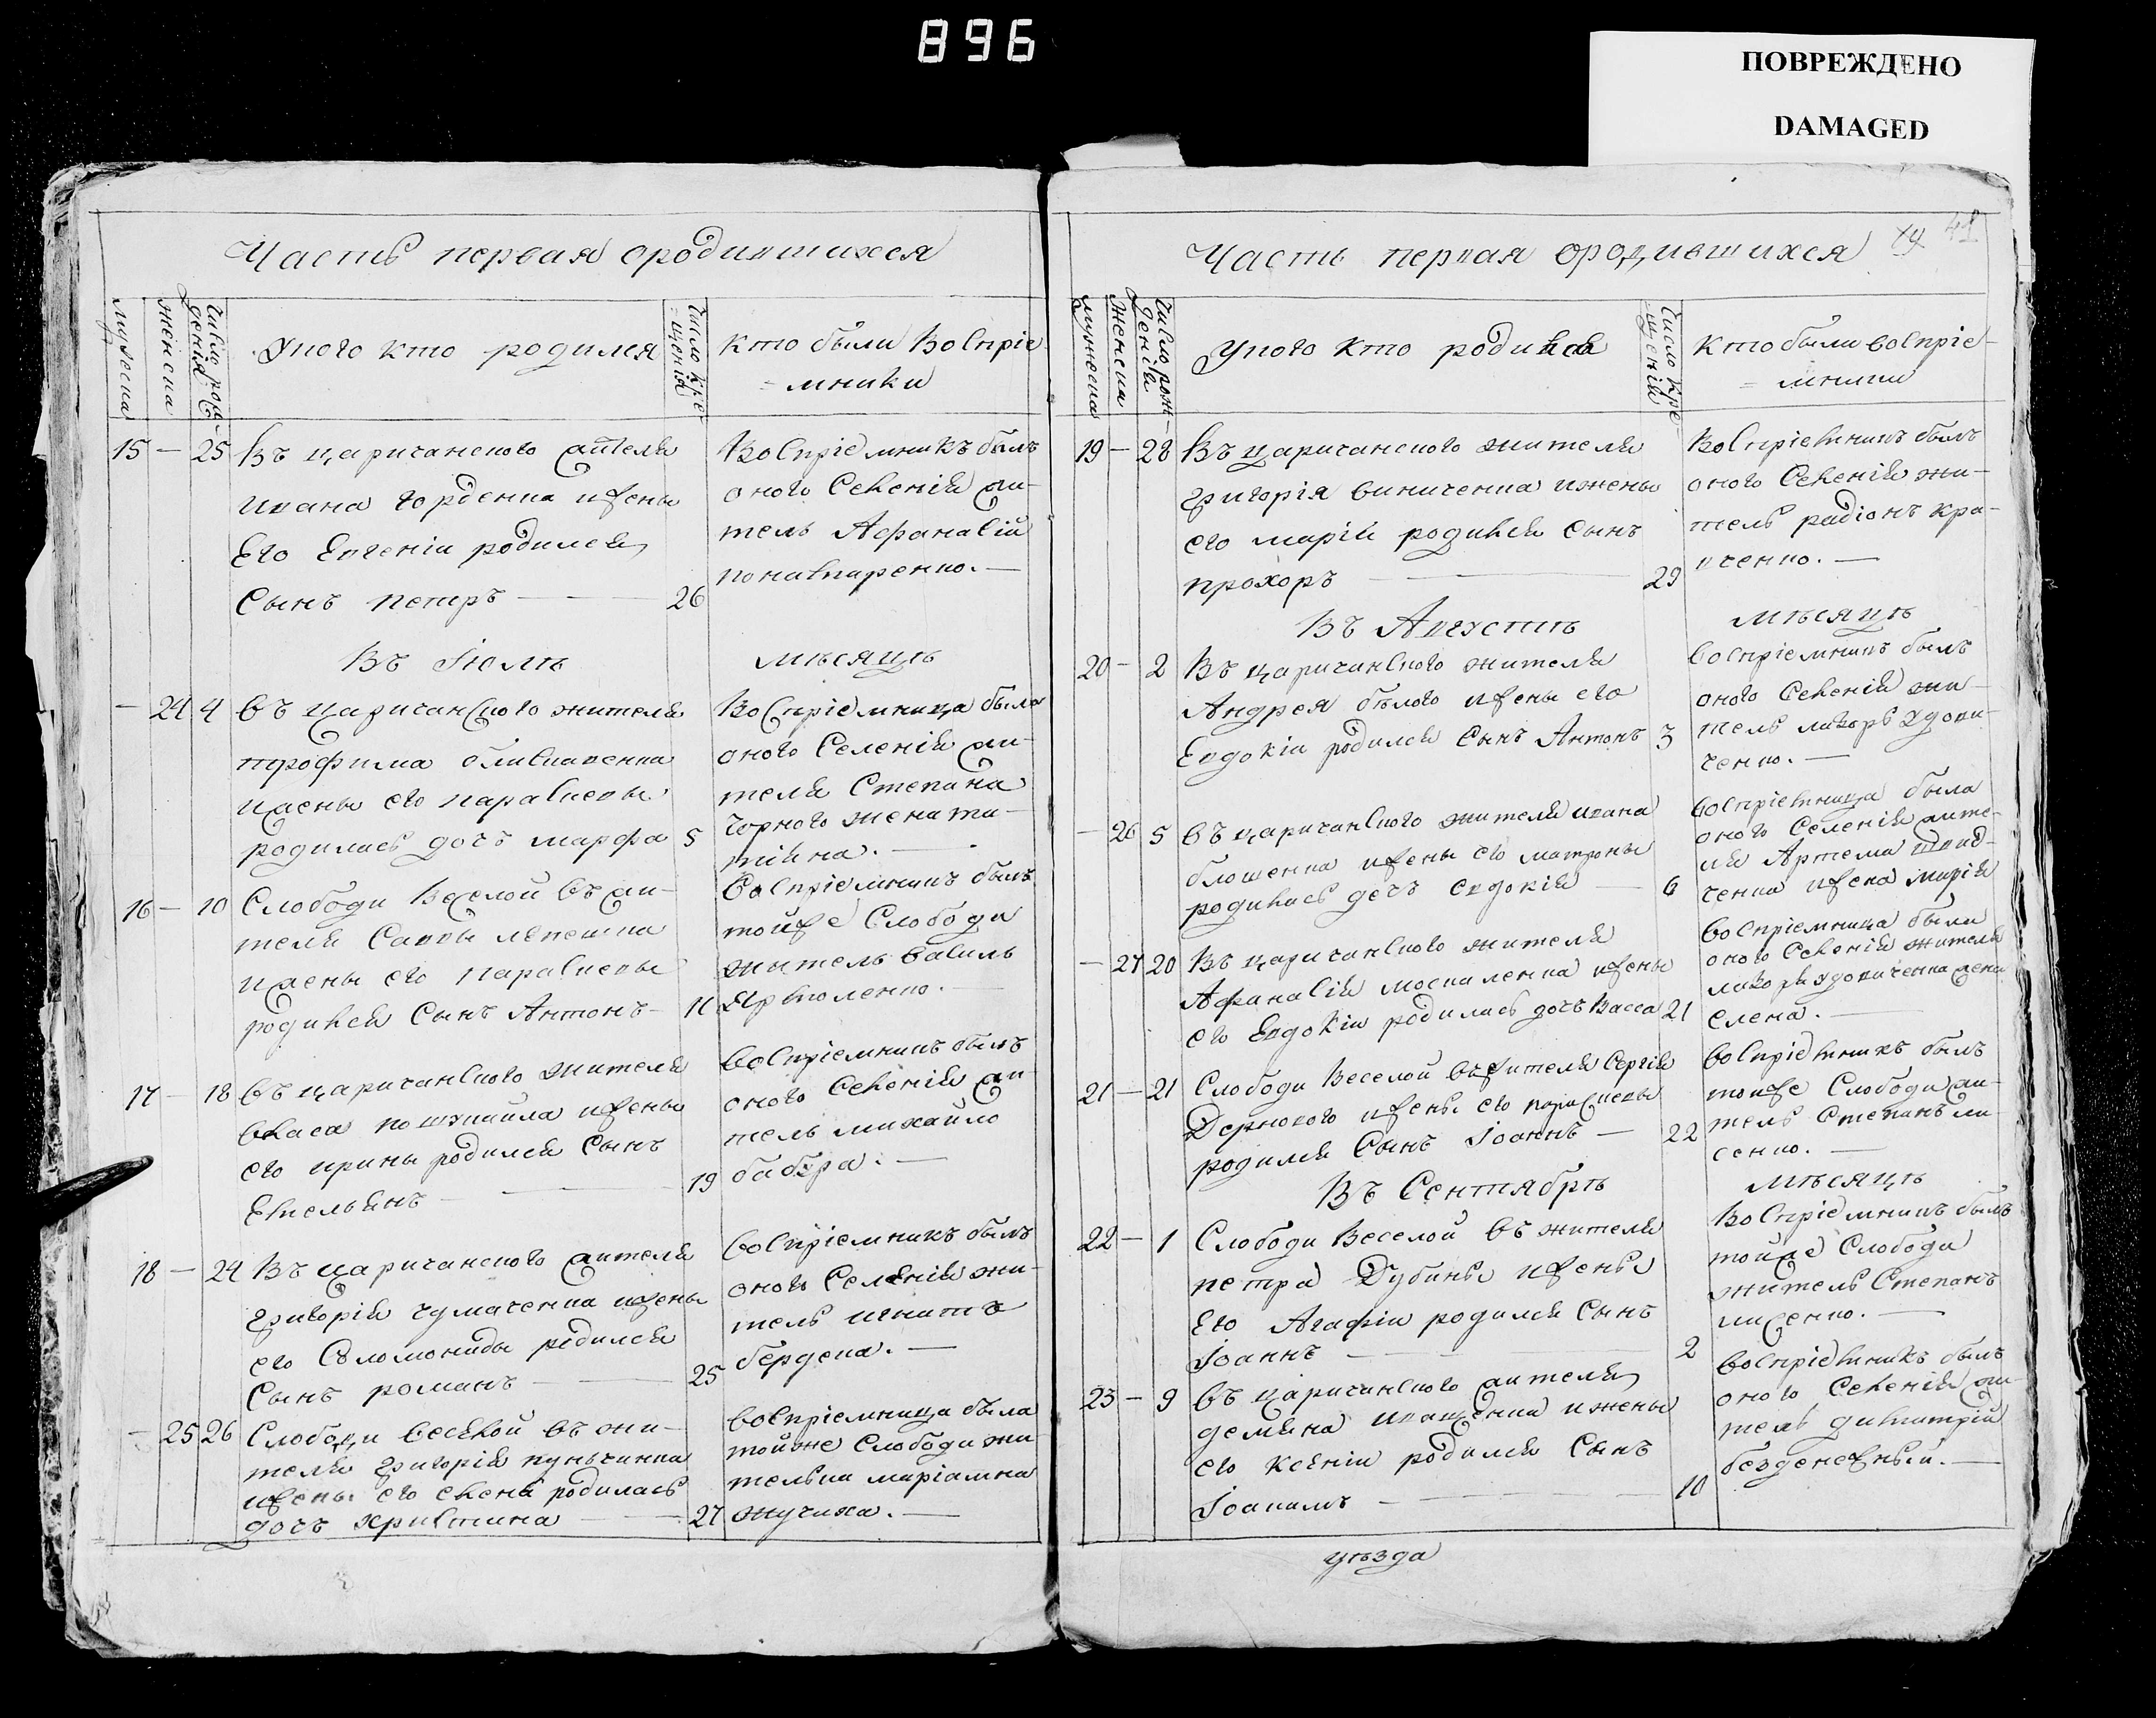 896
ПОВРЕЖДЕНО
DAMAGED
Часть первая ородившихся
мужеска
женска
Число рож
денія
Укого кто родился
Число кре
щенія
Кто были Воспріе
= мники
15 — 25 Въ царичанского жителя
Ивана гордѣенка ижены
Его Евгеніи родился
Сынъ петръ — 26
Воспріемникъ былъ
оного Селенія жи-
тель Афанасій
понамаренко. —
Въ Іюлѣ мѣсяцѣ
— 24 4 въ царичанского жителя
трофима
ижены его параскевы
родилась дочь марфа 5
Воспріемница была
оного Селенія жи-
теля Степана
Чорного жена та-
тіяна. —
16 — 10 Слободи Веселой въ жи-
теля Саввы лепешка
ижены его параскевы
родился Сынъ Антонъ — 11
Воспріемникъ былъ
тойже Слободи
житель василь
Ярмоленко. —
17 — 18 въ царичанского жителя
власа ижены
его ирины родился Сынъ
Емельянъ — 19
Воспріемникъ былъ
оного Селенія жи-
тель михайло
бабѣра. —
18 — 24 Въ царичанского жителя
григорія чумаченка ижены
его Соломониды родился
Сынъ романъ — 25
воспріемникъ былъ
оного Селенія жи-
тель игнатъ
бердена. —
— 25 26 Слободи веселой въ жи-
теля григорія
ижены его елены родилась
дочь христина — 27
воспріемница была
тойже Слободи жи
телька маріамна
жучиха. —
Часть первая ородившихся 41
мужеска
женска
Число рож
денія
Укого кто родился
Число кре
щенія
Кто были воспріе-
= мники
19 — 28 Въ царичанского жителя
григорія виниченка ижены
его маріи родился сынъ
прохоръ — 29
Воспріемникъ былъ
оного Селенія жи-
тель радіонъ кра-
вченко. —
Въ Августѣ мѣсяцѣ
20 — 2 Въ царичанского жителя
Андрея бѣлого ижены его
Евдокіи родился Сынъ Антонъ 3
воспріемникъ былъ
оного Селенія жи-
тель макаръ Удови-
ченко. —
— 26 5 въ царичанского жителя ивана
блошенка ижены его матроны
родилась дочь евдокія — 6
воспріемница была
оного Селенія жите-
ля Артема
ченка жена Марія
— 27 20 Въ царичанского жителя
Афанасія москаленка ижены
его Евдокіи родилась дочь Васса 21
воспріемница была
оного Селенія жителя
макара удовиченка жена
елена. —
21 — 21 Слободи Веселой въ жителя Сергія
Дернового ижены его параскевы
родился Сынъ Іоаннъ — 22
воспріемникъ былъ
тойже Слободи жи-
тель Степанъ ли-
сенко. —
Въ Сентябрѣ мѣсяцѣ
22 — 1 Слободи Веселой въ жителя
петра Дубины ижены
Его Агафіи родился Сынъ
Іоаннъ — 2
Воспріемникъ былъ
тойже Слободи
житель Степанъ
лисенко. —
23 — 9 въ царичанского жителя
демяна иващенка ижены
его ксеніи родился Сынъ
Іоакимъ — 10
воспріемникъ былъ
оного Селенія жи-
тель димитрій
безденежный. —
уѣзда